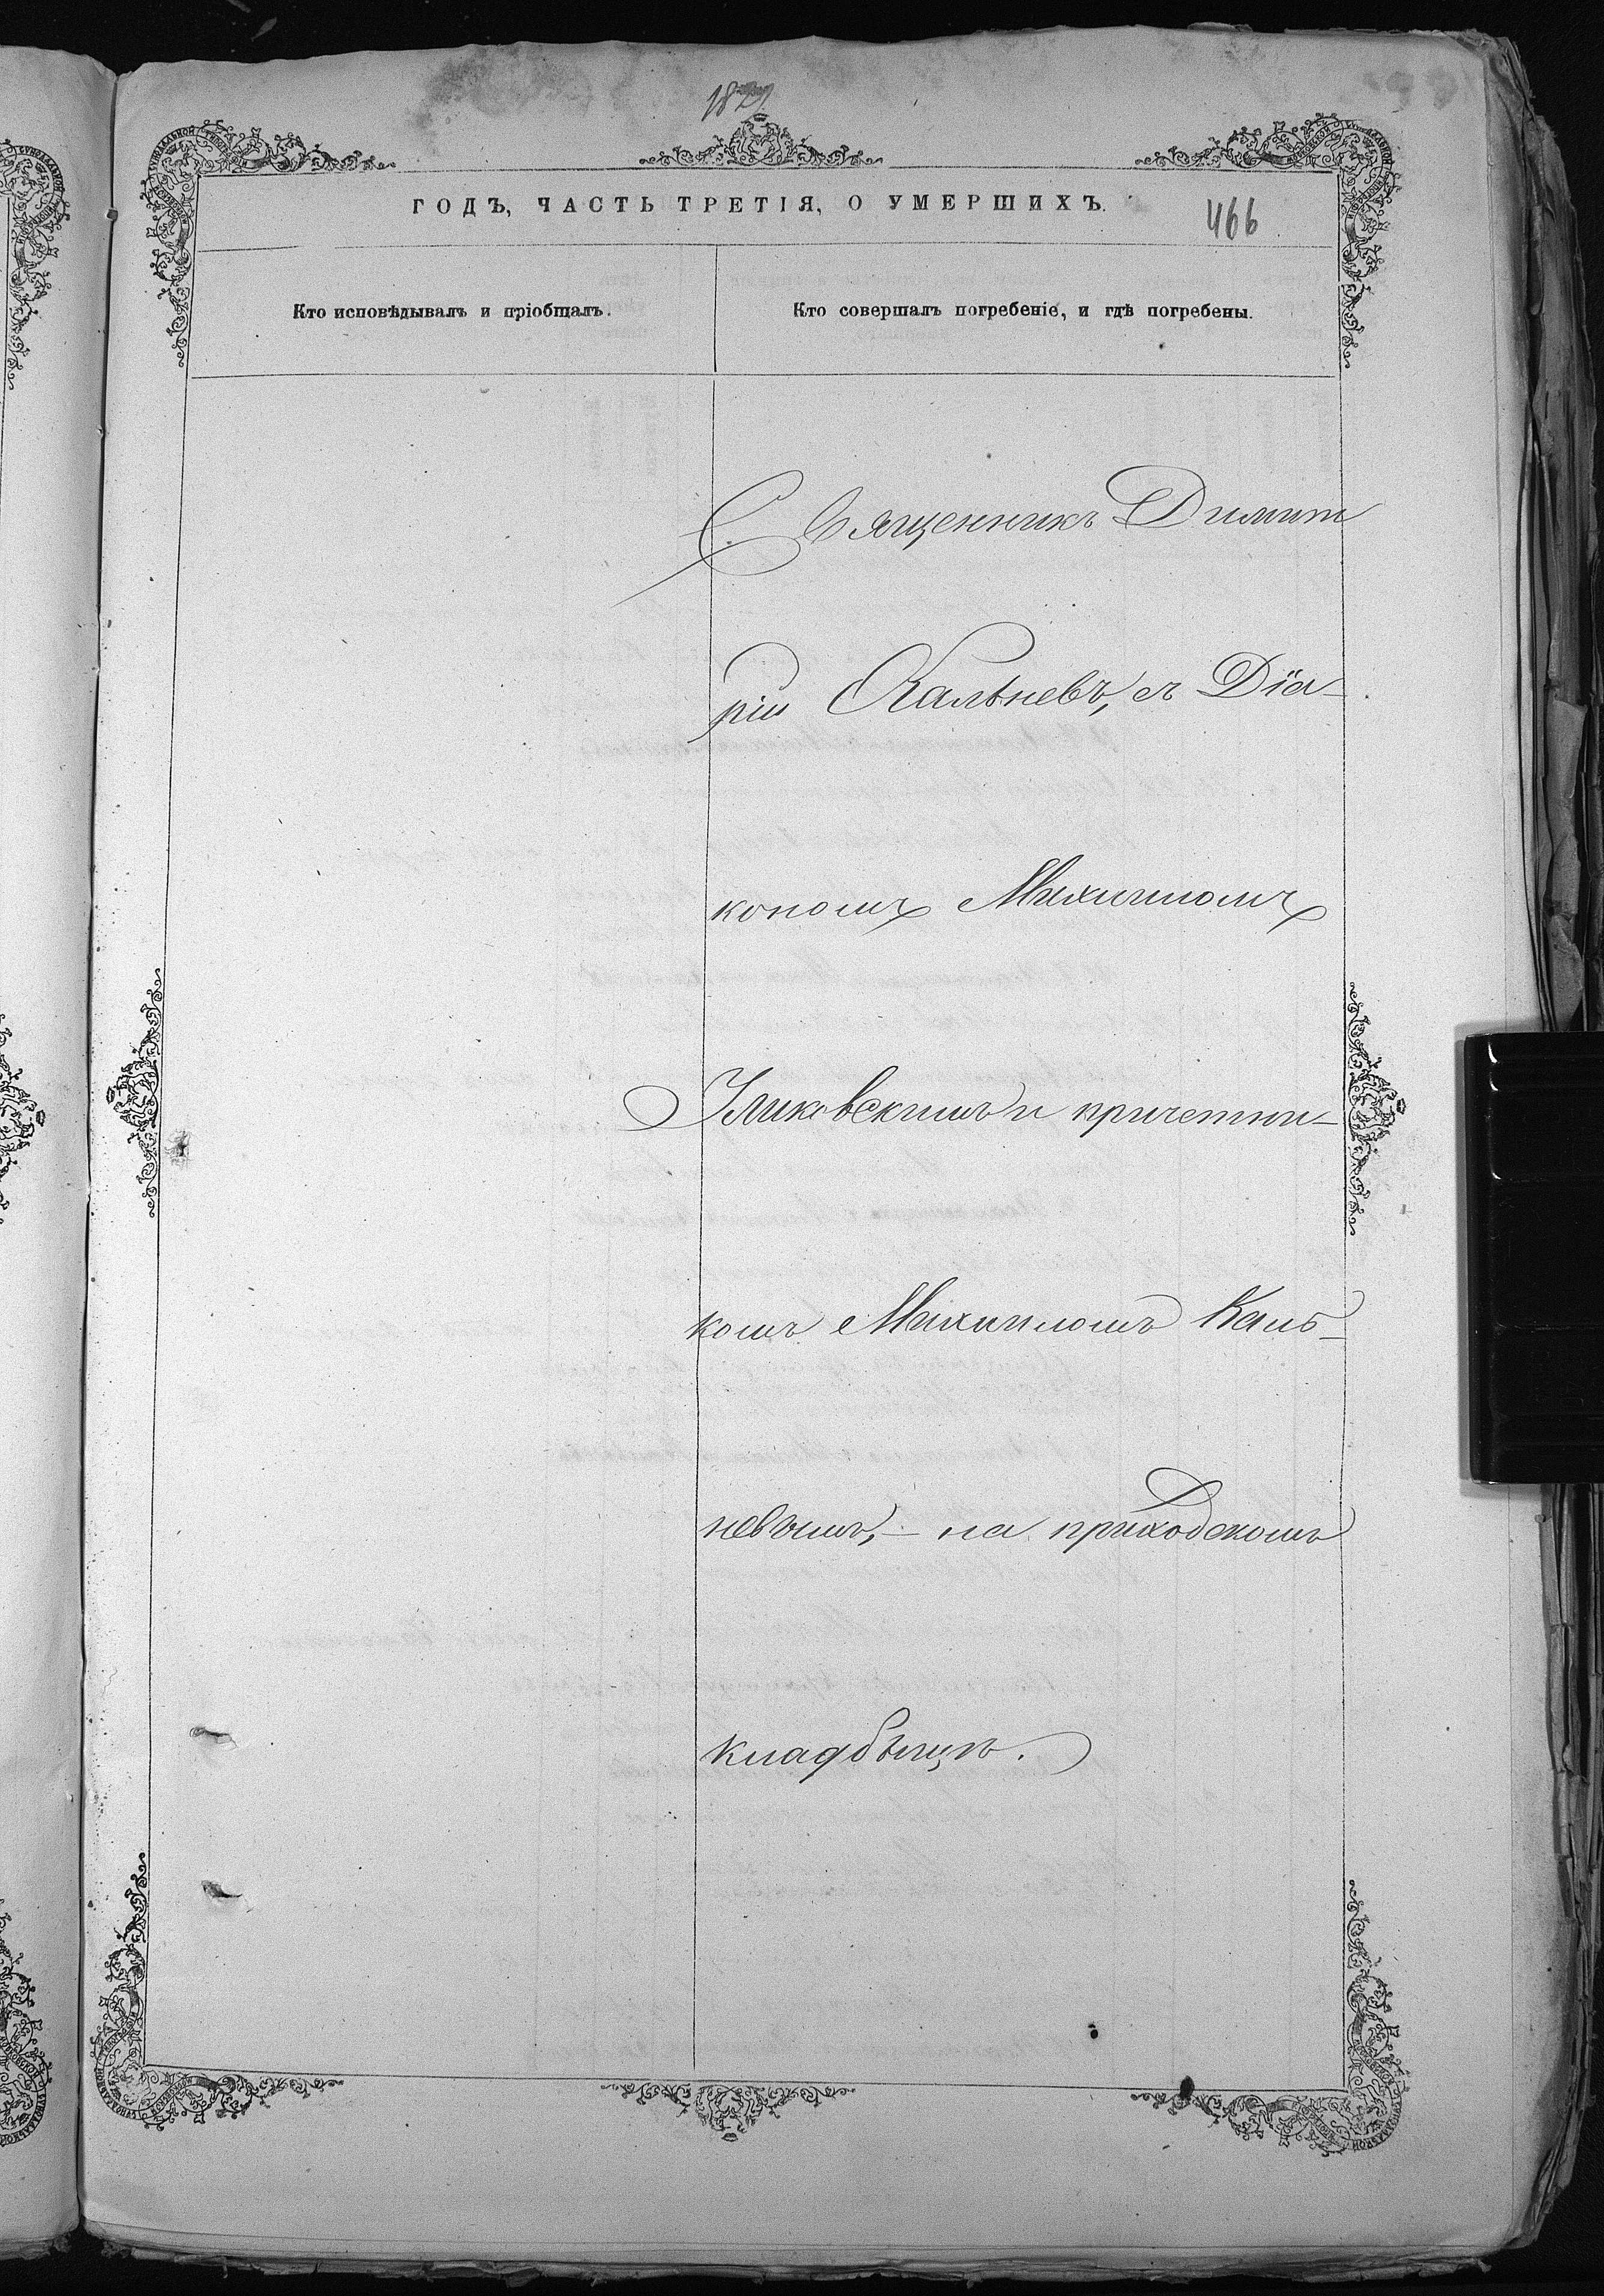 ГОДЪ, ЧАСТЬ ТРЕТІЯ, О УМЕРШИХЪ.
466
Кто исповѣдывалъ и пріобщалъ.
Кто совершалъ погребеніе, и гдѣ погребены.
Священникъ Димит
рій Кальневъ, съ Діа-
кономъ Михаиломъ
и причетни-
комъ Михаиломъ Каль-
невымъ, - на приходскомъ
кладбыщѣ.